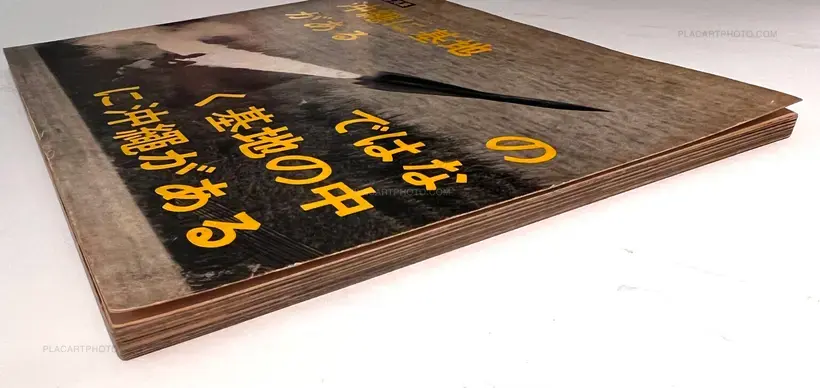 沖繩に基地
がある
の
ではな
く基地の中
に沖繩がある
PLACARTPHOTO.COM
PLACARTPHOTO.COM
PLACARTPHOTO